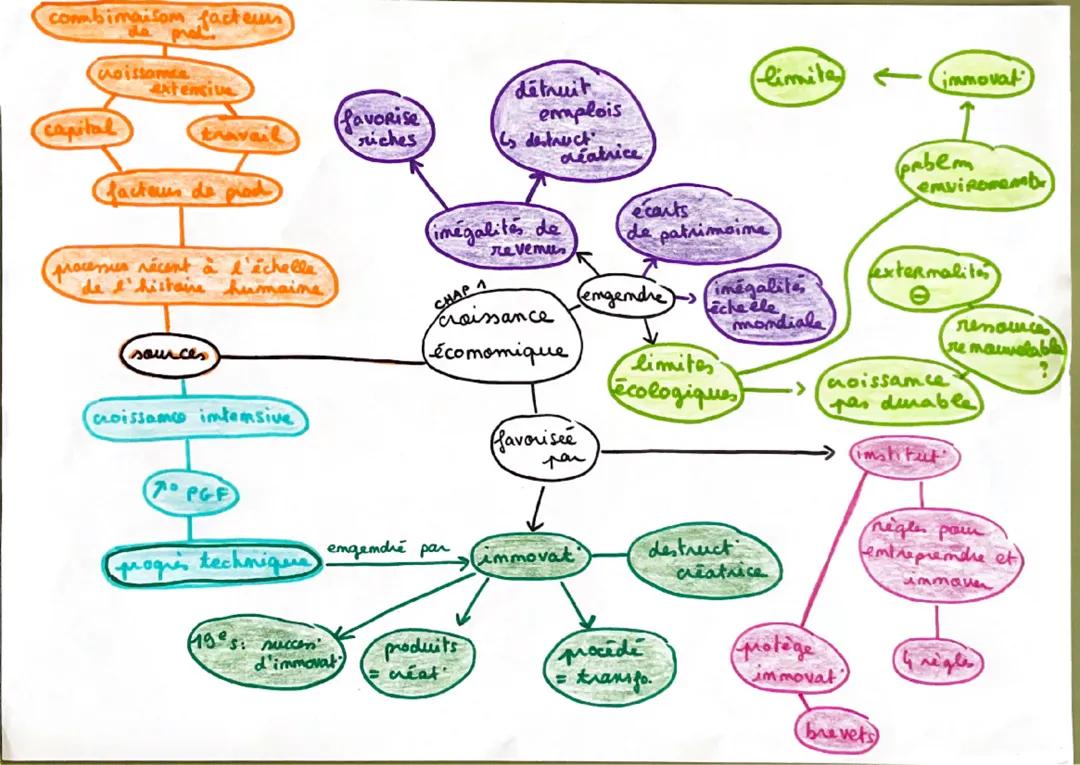 combinaison facteurs
de prod.
croissance
extensive
capital
travail
facteurs de prod
processus récent à l'échelle
de l'histoire humaine
sources
croissance intensive
↗° PGF
progrès technique
engendré par
CHAP 1
croissance
économique
favorise
riches
détruit
emplois
↳ destruct°
créatrice
inégalités de
revenus
écarts
de patrimoine
engendre
inégalités
échelle
mondiale
limites
écologiques
limite
innovat°
pblem
environnementx
externalités
⊖
ressources
renouvelable
?
croissance
pas durable
favorisée
par
institut°
règles pour
entreprendre et
innover
4 règles
protège
innovat°
brevets
innovat°
destruct°
créatrice
19e s: success°
d'innovat°
produits
= créat°
procédé
= transfo.